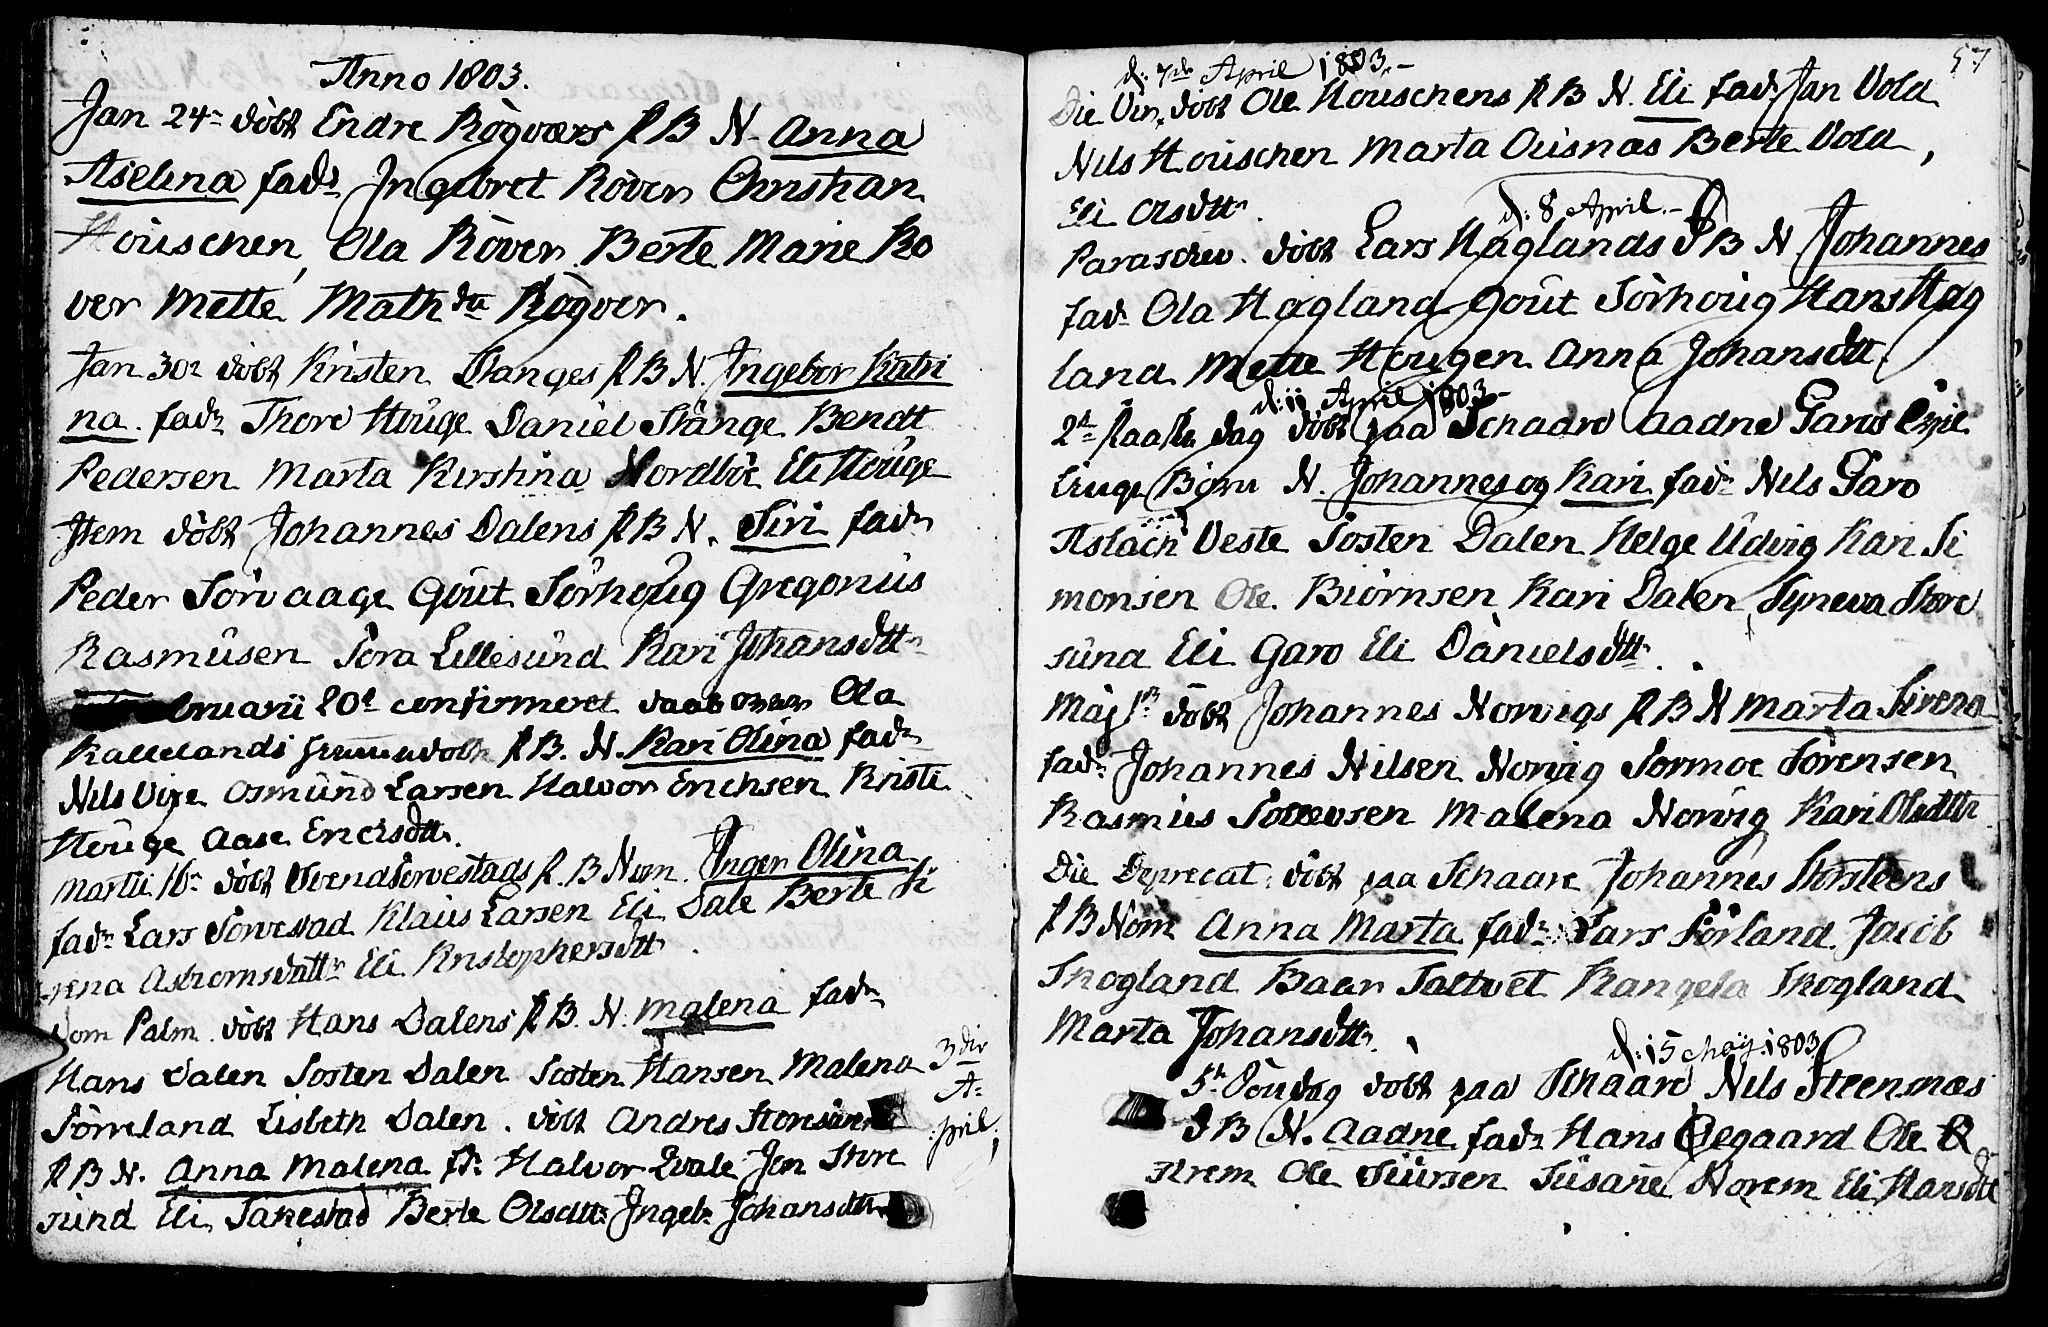 Anno 1803.
Jan 24 döbt Endre Rögværs P B N. Anna
Aselina fad. Ingebret Röver Christian
Houschen, Ola Röver Berte Marie Rö
ver Mette Math da Rögver.
Jan 30 döbt Kristen Stanges P B N. Ingebor Katri
na. fad. Thore Houge Daniel Stange Bendt
Pedersen Marta Kirstina Nordböe Eli Houge
Item döbt Johannes Dalens P B N. Siri fad
Peder Sörvaage Gout Sörhoug Gregorius
Rasmusen Sora Lillesund Kari Johansdtt
bruarii 20 confirmeret daab Ola
Kallelands P B. N. Kari Olina fad
Nils Osmund Larsen Halvor Erichsen Kriste
Houge Aase Erichsdtt.
Martii 16 döbt P. B Nom. Inger Olina
fad. Lars Klaus Larsen Eli Dale Berte Si
rena Eli Kristophersdtt.
Dom Palm. döbt Hans Dalens P B. N. Malena fad
Hans Dalen Sosten Dalen Sosten Hansen Malena
Sörreland Lisbeth Dalen. döbt Andres
P B N. Anna Malena f. Halvor Qvale Jen Store
sund Eli Sakestad Berte Olsdtt Ingeb. Johansdtt
3 die
A-
pril.
57
d: 7de April 1803.-
Die Vir. döbt Ole Houschens P B N. Eli fad. Jan Vold
Nils Houschen Marta Ousnæs Berte Vold,
Eli Olsdtt.
d: 8 April.-
Parascheu. döbt Lars Haglands D B N Johannes
fad Ola Hagland Gout Sörhoug Hans Hag
land Mette Hougen Anna Johansdtt.
d: 11 April 1803-
2d Paaske dag döbt paa Schaare Aadne Garos
Börn N. Johannes og Kari fad. Nils Garo
Aslach Veste Sosten Dalen Helge Udvig Kari Si
monsen Ole Biörnsen Kari Dalen, Syneva Store
sund Eli Garo Eli Danielsdtt.
Maj 1 döbt Johannes Norvigs P B N Marta Sirena
fad. Johannes Nilsen Norvig Sormoe Sörensen
Rasmus Malena Norvig Kari Olsdttr
Die Deprecat. döbt paa Schaare Johannes Storsteens
P B Nom Anna Marta fad. Lars Sörland Jacob
Skogland Baar Saltvet Rangela Skogland
Marta Johansdtt.
d: 15 May. 1803
5 Söndag döbt paa Schaare Nils Steensnæs
D B N. Aadne fad. Hans Öegaard Ole
strem Ole Siursen Susane Norem Eli Hansdtt